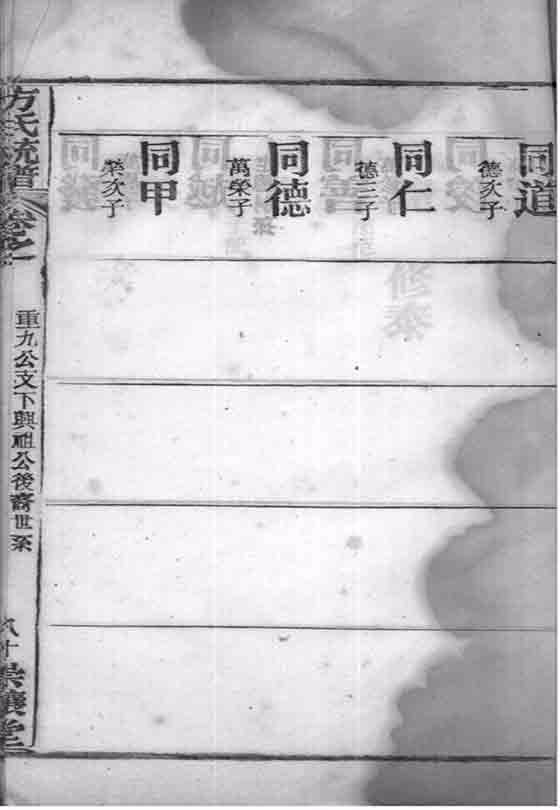 同道
德次子
同仁
德三子
同德
萬榮子
同甲
榮次子
方氏統譜
卷之
重九公文下興祖公後裔世系
八十